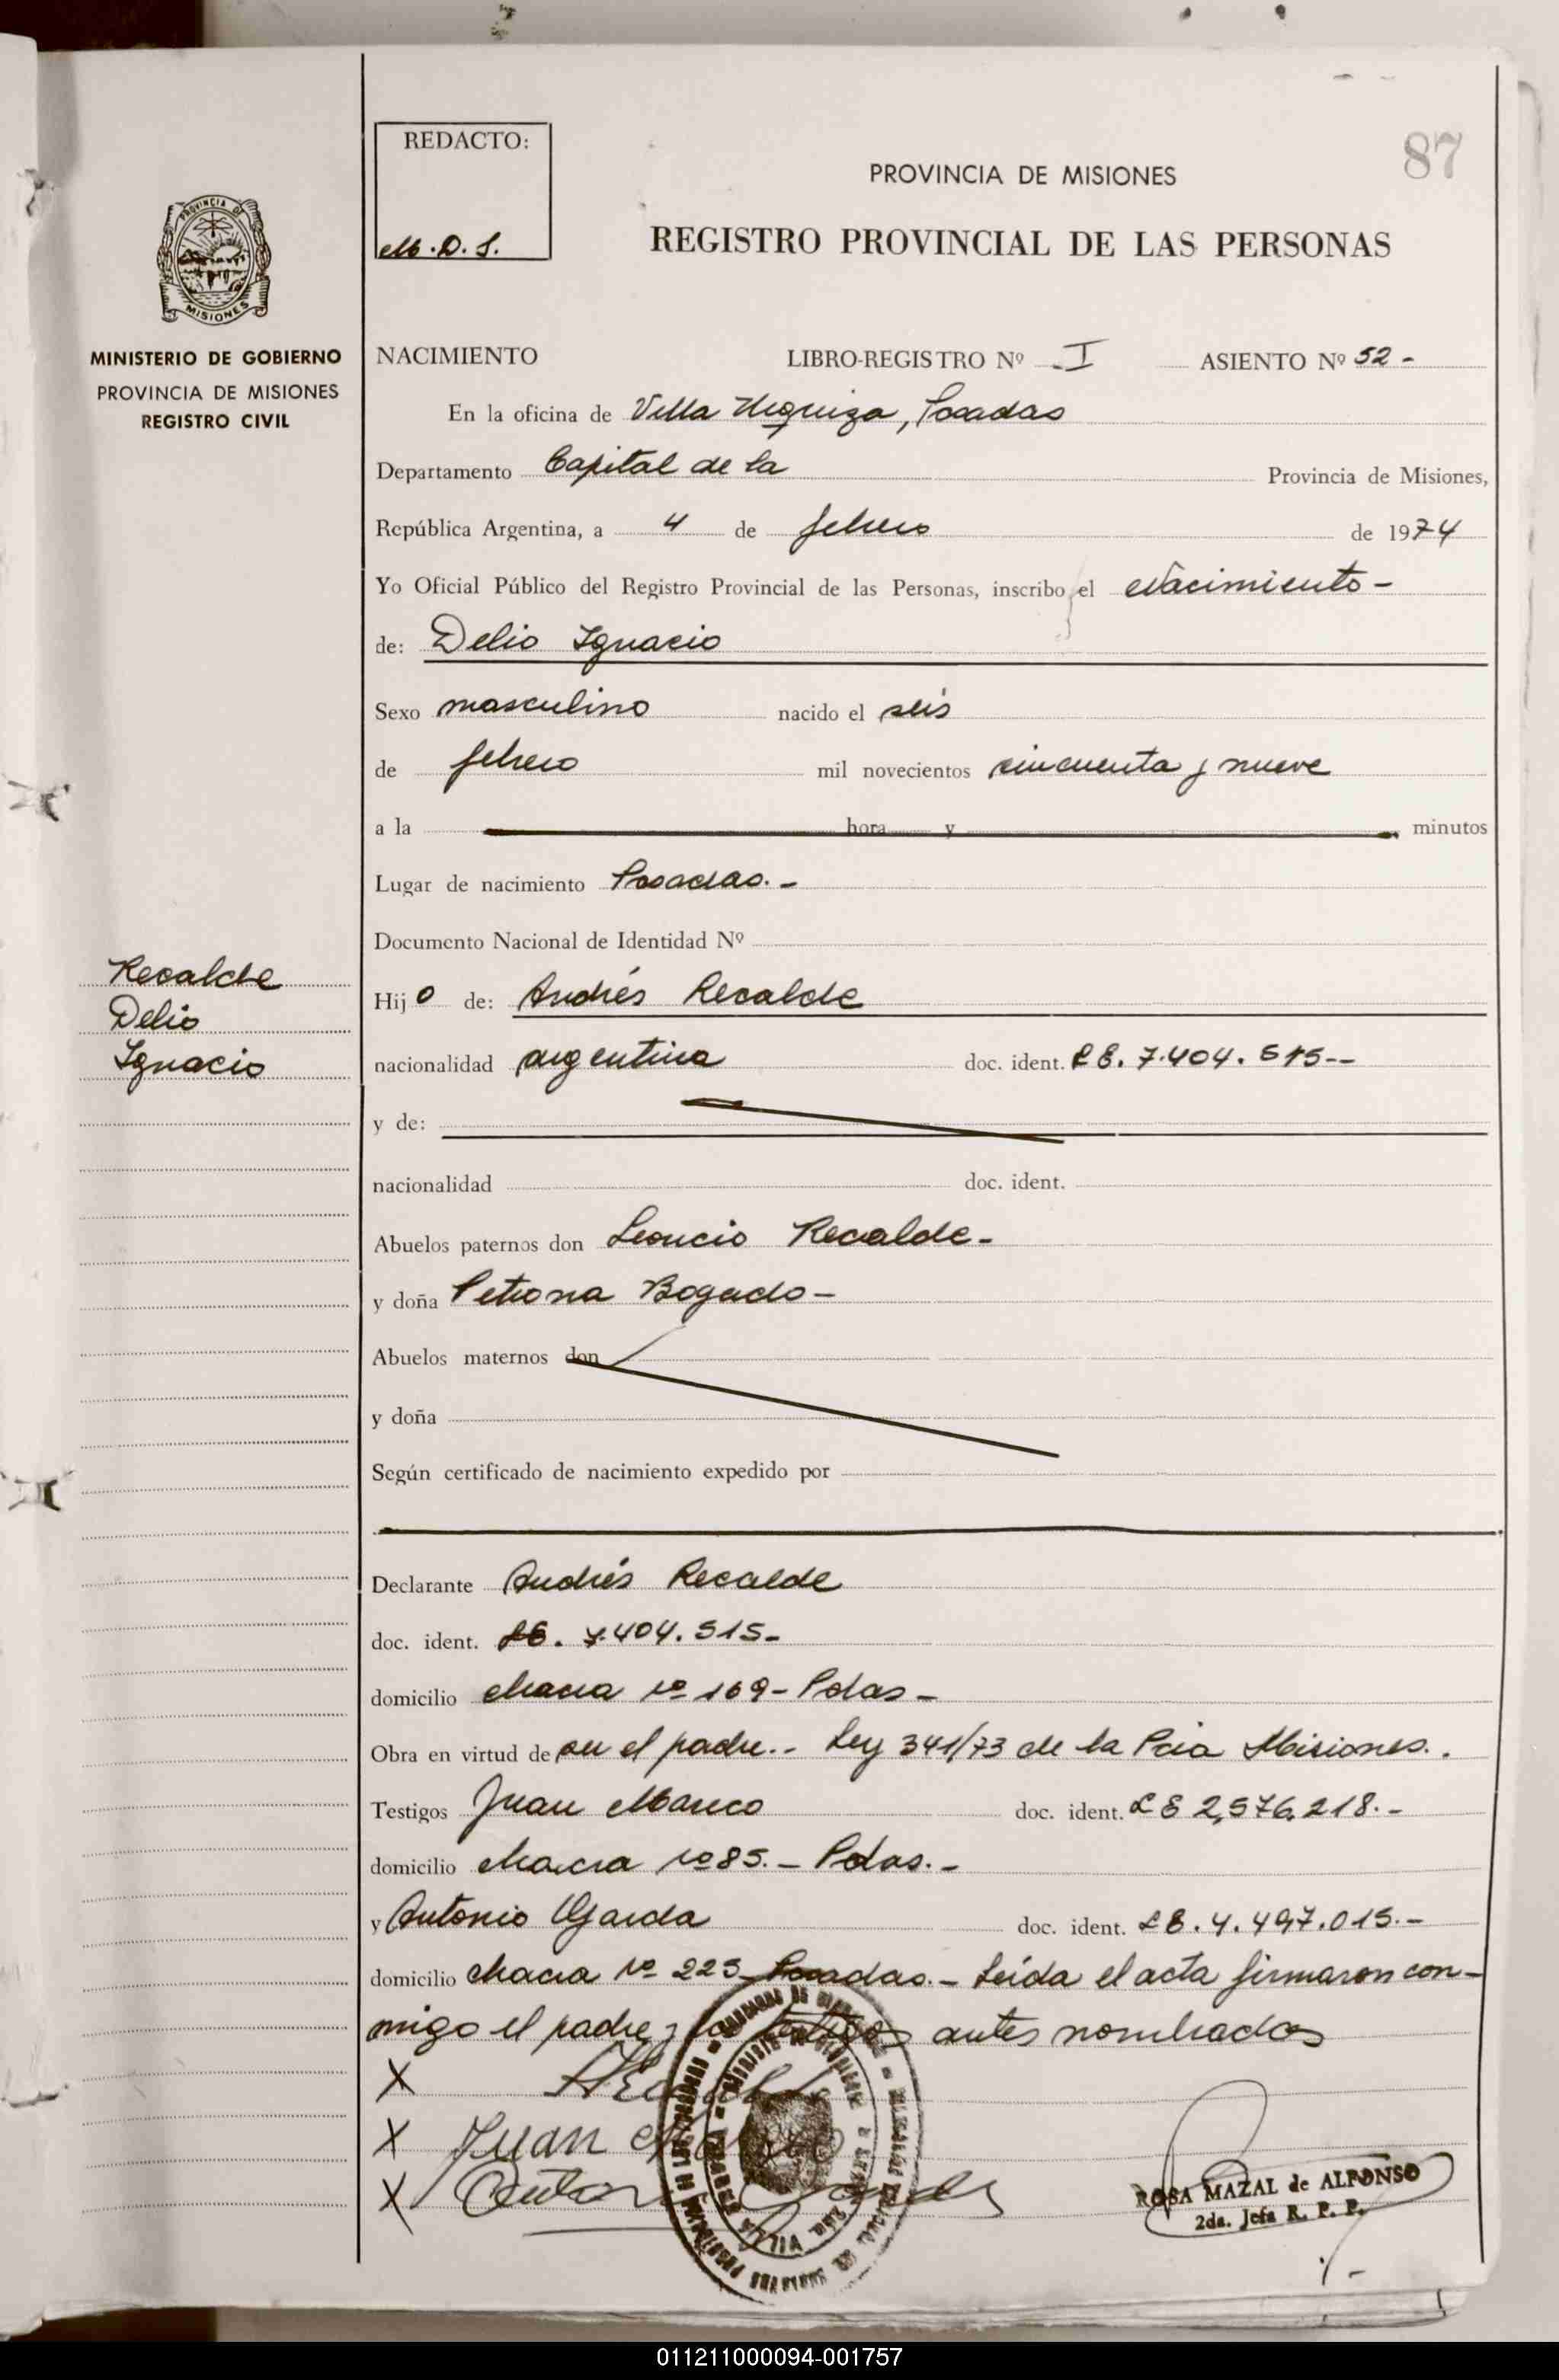 87
REDACTO:
M.D.S.
PROVINCIA DE MISIONES
REGISTRO PROVINCIAL DE LAS PERSONAS
PROVINCIA DE
MISIONES
MINISTERIO DE GOBIERNO
PROVINCIA DE MISIONES
REGISTRO CIVIL
NACIMIENTO LIBRO-REGISTRO Nº I ASIENTO Nº 52-
En la oficina de Villa Urquiza, Posadas
Departamento Capital de la Provincia de Misiones,
República Argentina, a 4 de febrero de 1974
Yo Oficial Público del Registro Provincial de las Personas, inscribo el Nacimiento-
de: Delio Ignacio
Sexo masculino nacido el seis
de febrero mil novecientos cincuenta y nueve
a la hora y minutos
Lugar de nacimiento Posadas.-
Documento Nacional de Identidad Nº
Recalde
Delio
Ignacio
Hijo de: Andrés Recalde
nacionalidad argentina doc. ident. LE. 7.404.515--
y de:
nacionalidad doc. ident.
Abuelos paternos don Leoncio Recalde-
y doña Petrona Bogado-
Abuelos maternos don
y doña
Según certificado de nacimiento expedido por
Declarante Andrés Recalde
doc. ident. LE. 7.404.515-
domicilio Chacra nº 169-Pdas-
Obra en virtud de ser el padre.- Ley 341/73 de la Pcia Misiones..
Testigos Juan Mareco doc. ident. LE 2,576,218.-
domicilio Chacra nº 85.- Pdas.-
y Antonio doc. ident. LE.4.497.015.-
domicilio Chacra nº 223-Posadas.- Leída el acta firmaron con-
migo el padre y los testigos antes nombrados
X
X Juan
X
ROSA MAZAL de ALFONSO
2da. Jefa R. P. P.
011211000094-001757